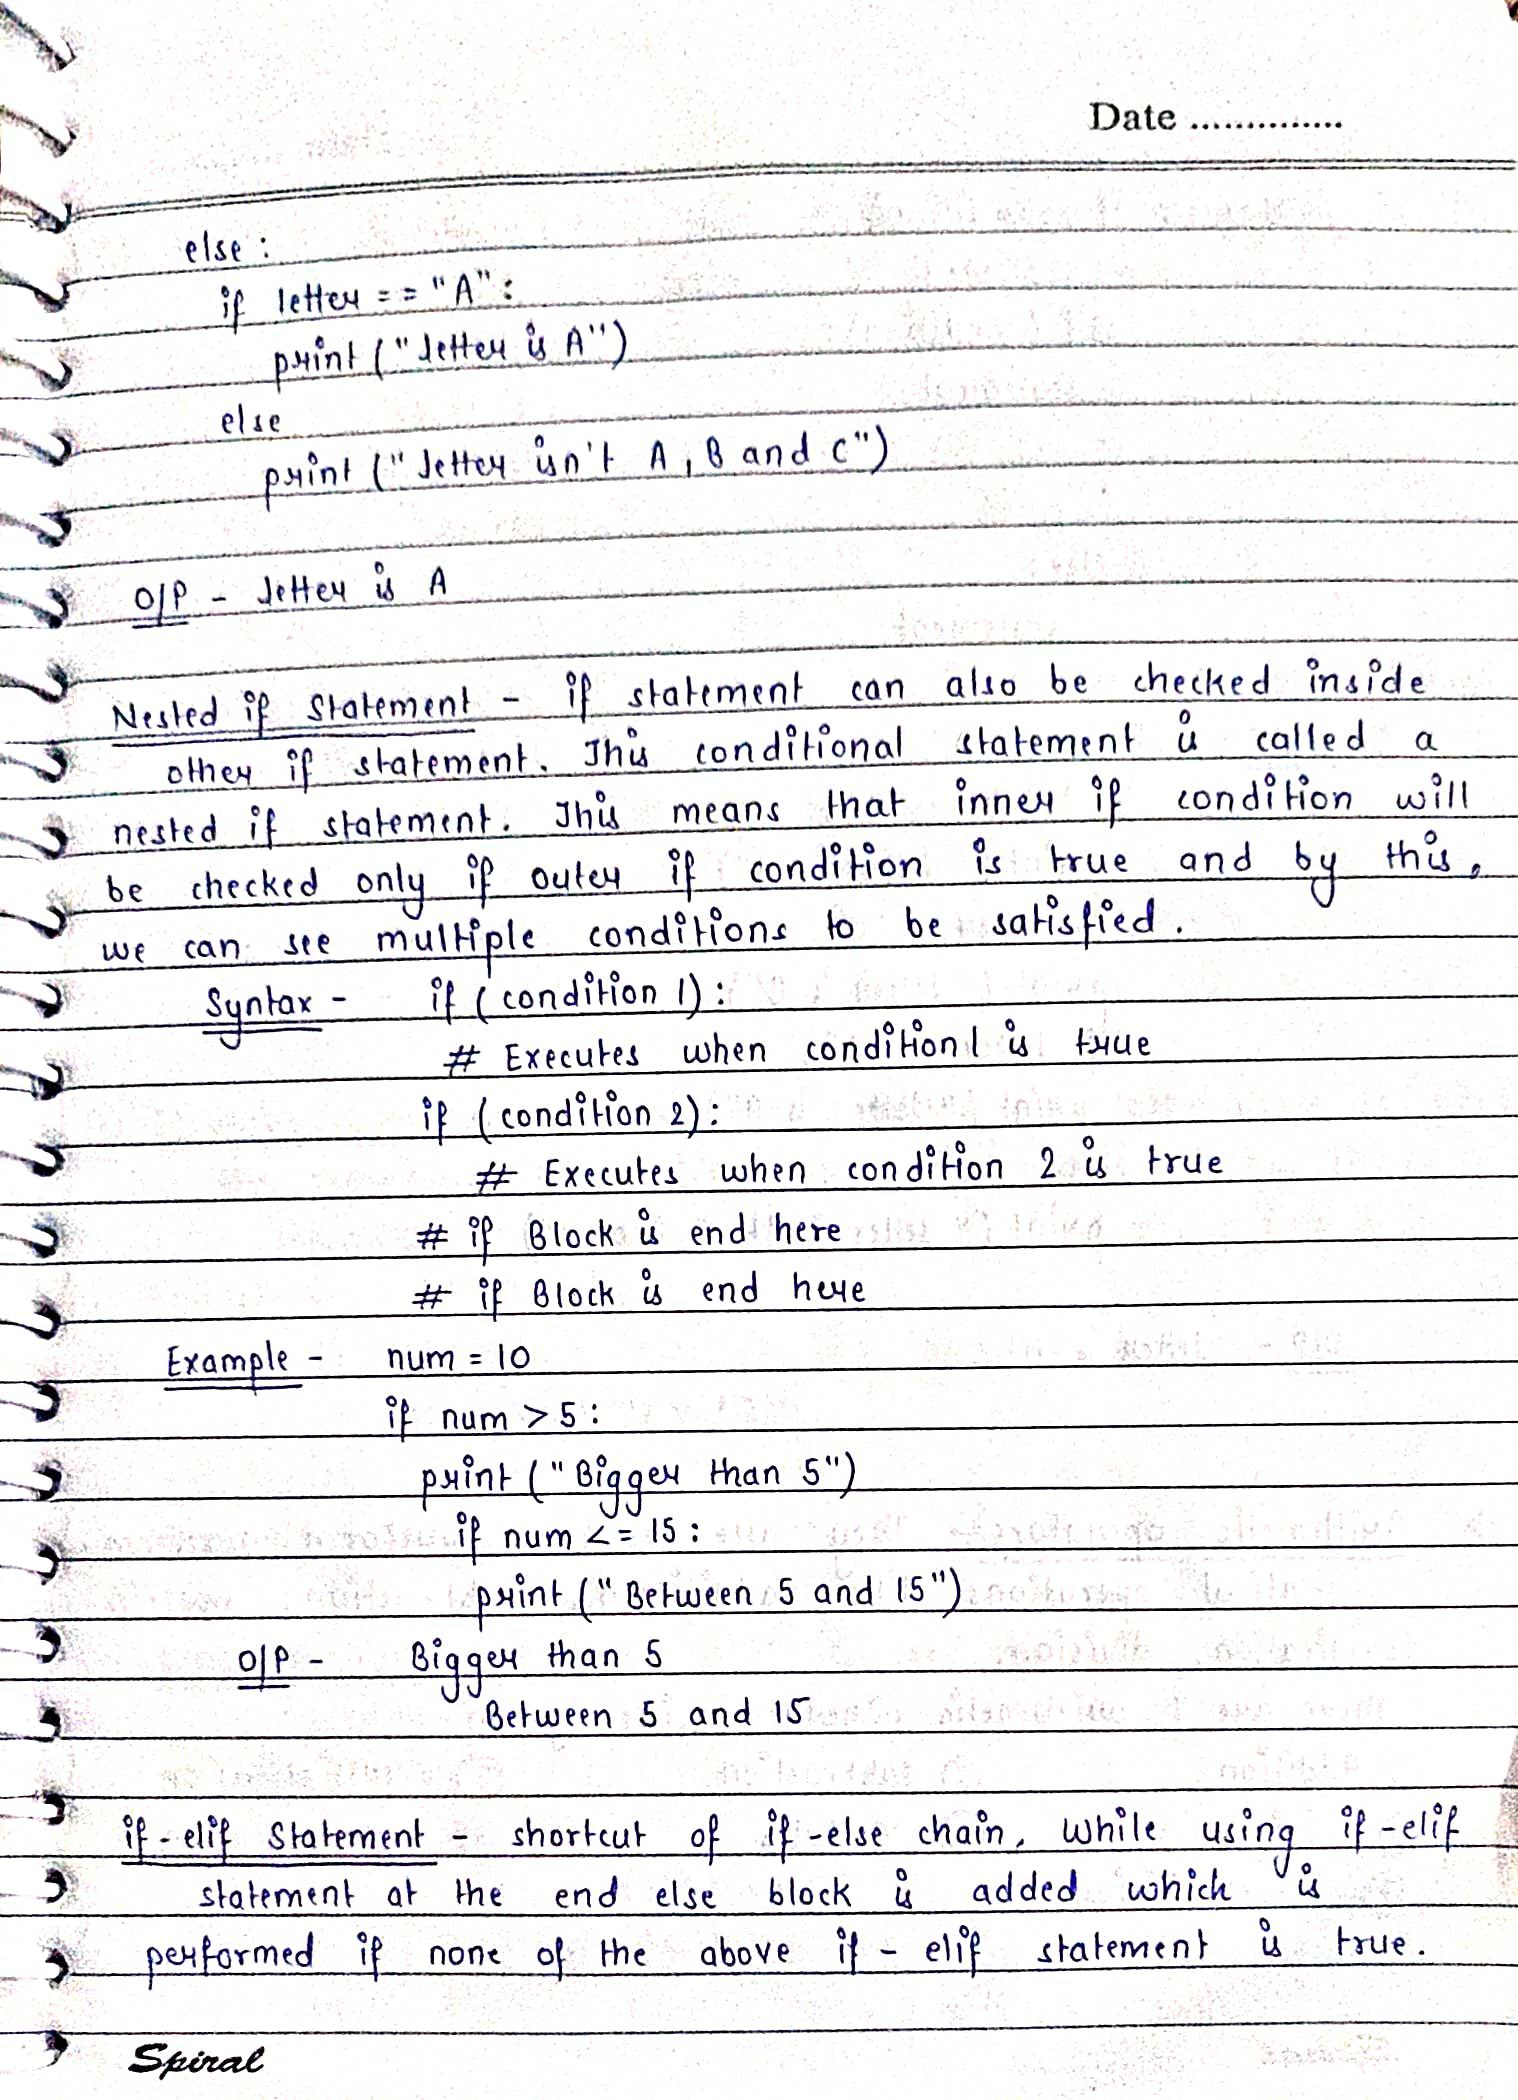 Date ..............
else :
if letter == "A" :
print ("letter is A")
else
print ("letter isn't A, B and C")
O/P - letter is A
Nested if Statement - if statement can also be checked inside
other if statement. This conditional statement is called a
nested if statement. This means that inner if condition will
be checked only if outer if condition is true and by this,
we can see multiple conditions to be satisfied.
Syntax - if (condition 1) :
# Executes when condition 1 is true
if (condition 2) :
# Executes when condition 2 is true
# if Block is end here
# if Block is end here
Example - num = 10
if num > 5 :
print ("Bigger than 5")
if num <= 15 :
print ("Between 5 and 15")
O/P - Bigger than 5
Between 5 and 15
if-elif Statement - shortcut of if-else chain, while using if-elif
statement at the end else block is added which is
performed if none of the above if-elif statement is true.
Spiral